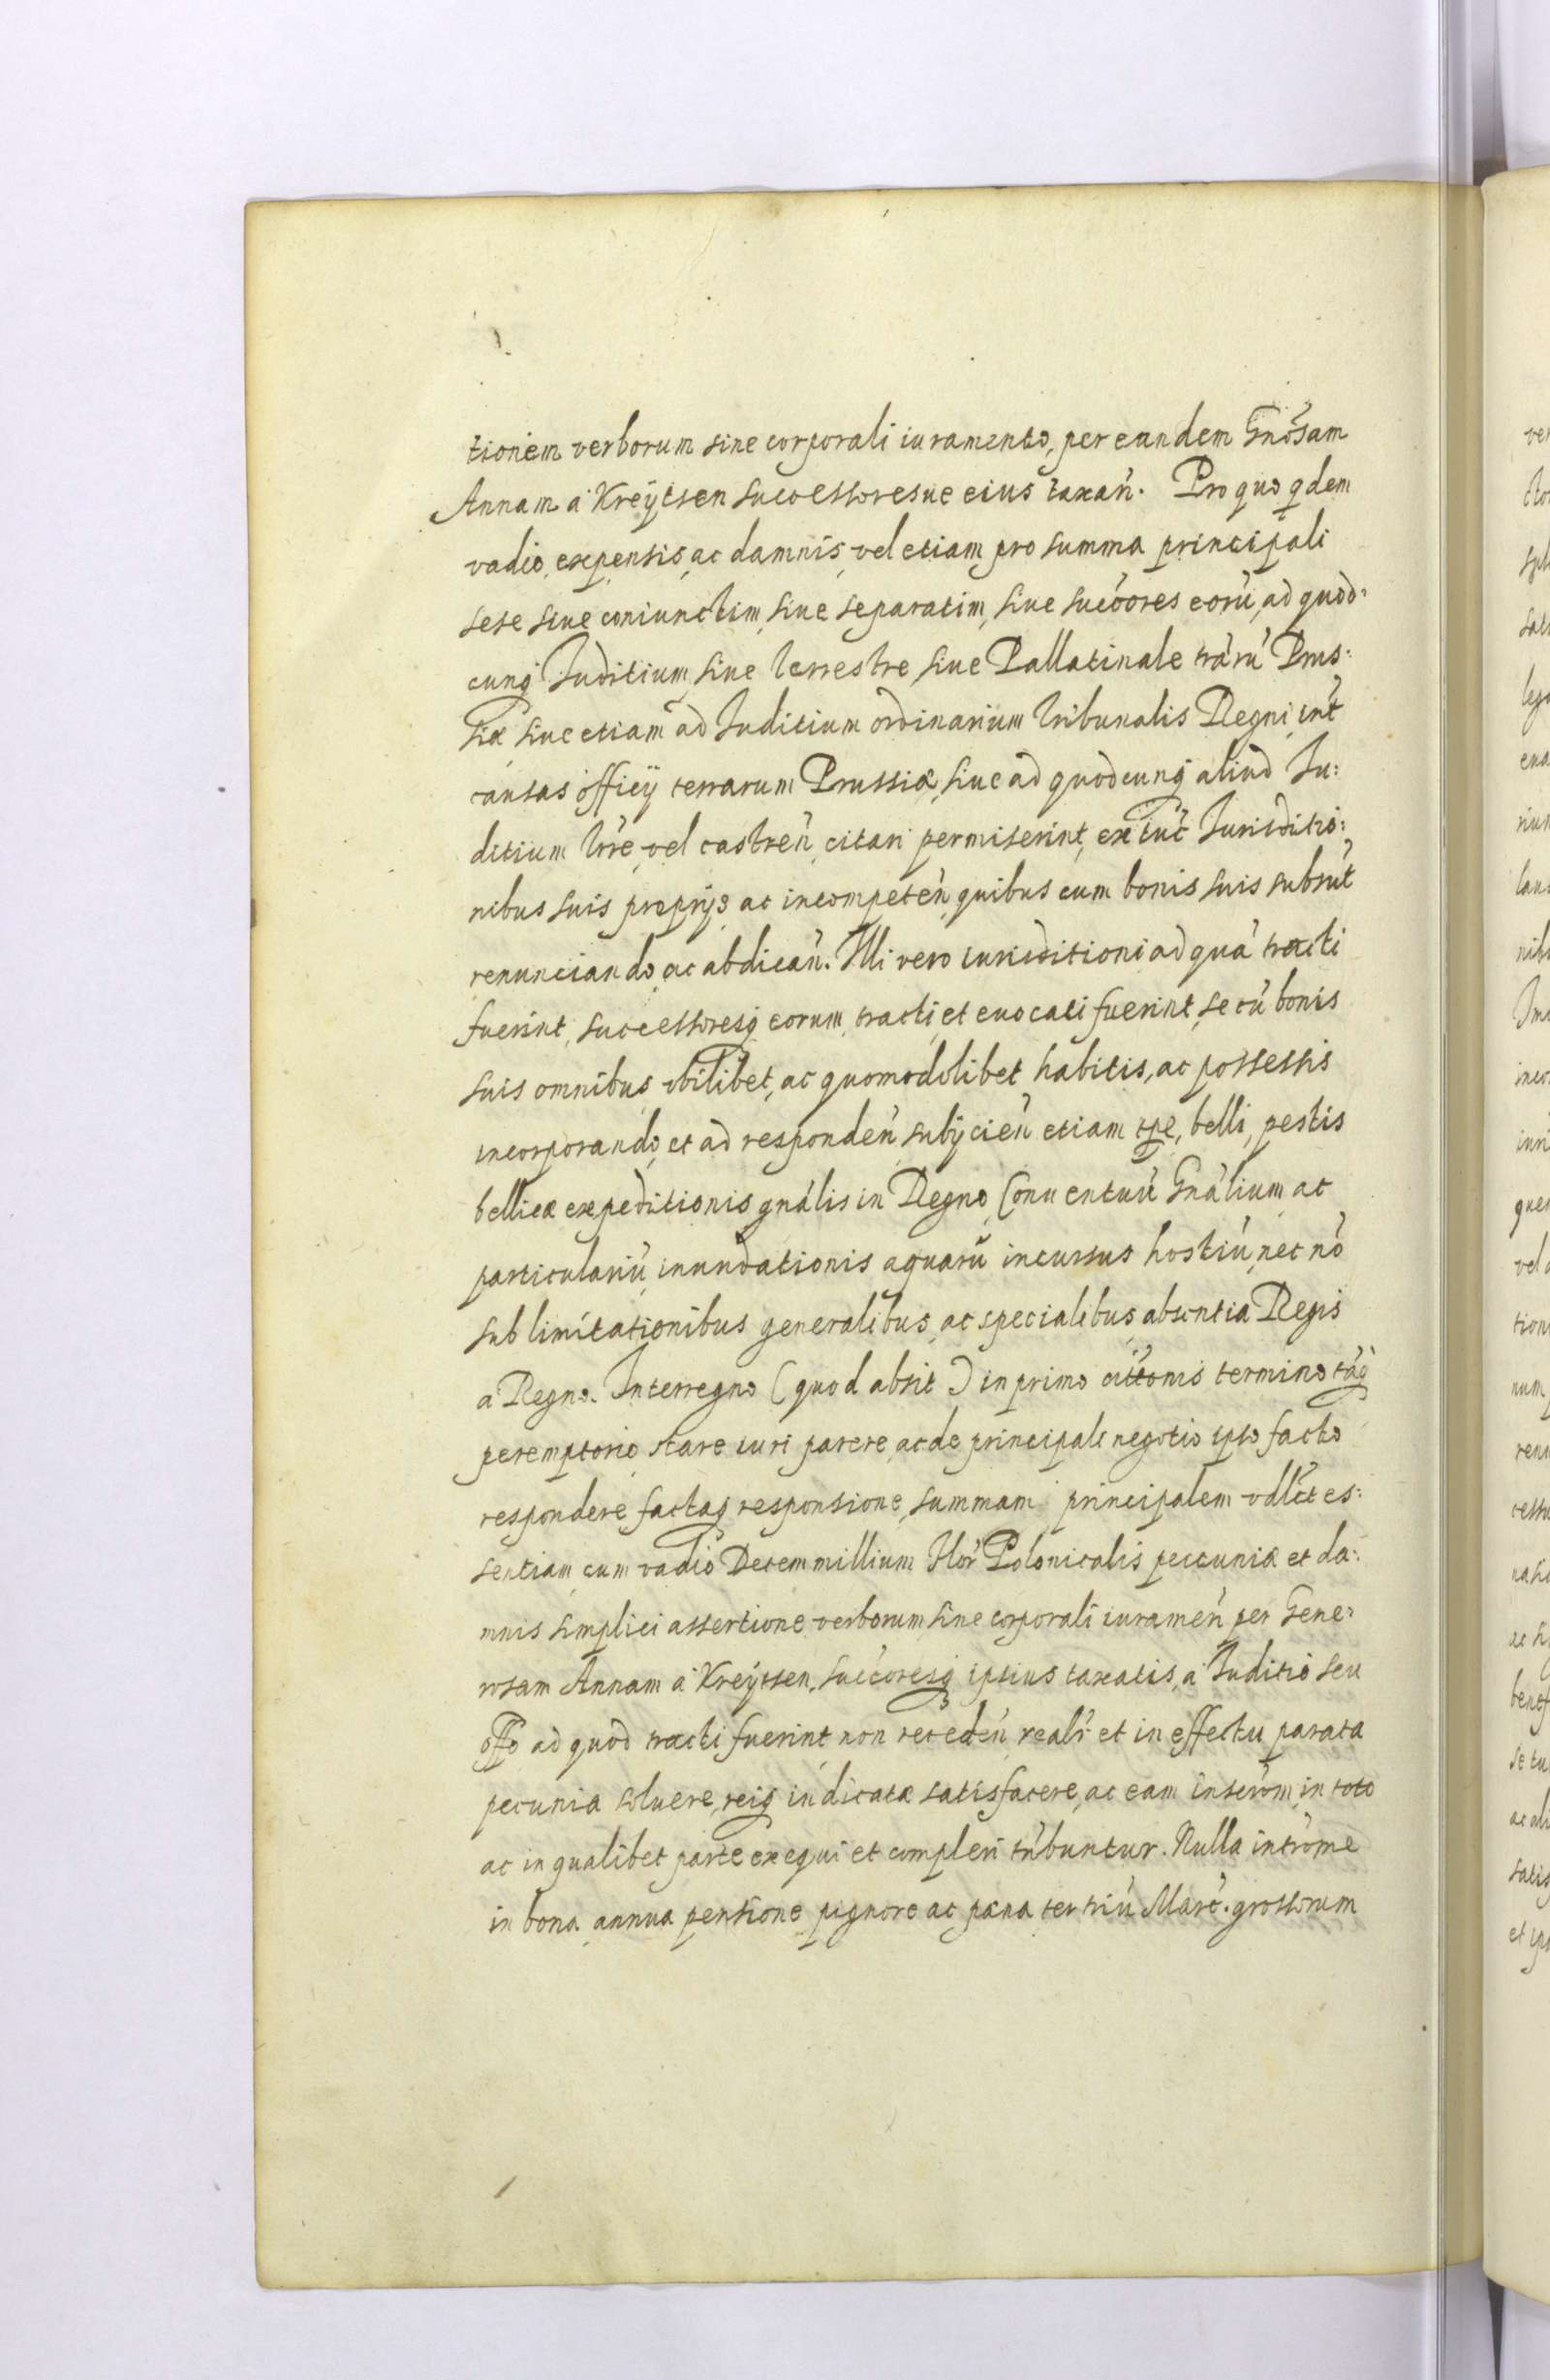 tionem verborum sine corporali iuramento, per eandem Gnósam
Annam á Kreÿtsen successoresue eius taxań. Pro quo qdem
vadio, expensis, ac damnis, vel etiam pro summa principali
sese siue coniunctim, siue separatim, siue succóres eorú, ad quod:
cunq Juditium, siue terrestre, siue Pallatinale trárú Prus:
siæ siue etiam ad Juditium ordinarium Tribunalis Regni, int
causas officÿ terrarum Prussiæ, siue ad quodcunq aliud Ju:
ditium trŕe, vel castreń, citari permiserint, ex tuć Jurisditio:
nibus suis proprÿs ac incompeteń, quibus cum bonis suis subsút
renunciando, ac abdicań. Illi vero iurisditioni ad quá tracti
fuerint, successoresq eorum, tracti, et euocati fuerint, se cú bonis
suis omnibus vbilibet, ac quomodolibet habitis, ac possessis
incorporando, et ad respondeń subÿcień etiam tpe, belli, pestis
bellicæ expeditionis gnális in Regno, Conuentuú Gnálium, ac
particulariú, inundationis aquarú incursus hostiú, nec nó
sub limitationibus generalibus, ac specialibus, absentia Regis
a Regno. Interregno (quod absit) in primo citt́onis termino táq
peremptorio stare iuri parere, ac de principali negotio ipso facto
respondere, factaq responsione, summam principalem vdlćt es:
sentiam, cum vadio Decem millium Flor Polonicalis pecuniæ et da:
mnis simplici assertione verborum sine corporali iurameń per Gene:
rosam Annam á Kreÿtsen, succóresq ipsius taxatis, á Juditio seu
offo ad quod tracti fuerint non recedeń, realr et in effectu parata
pecunia soluere, reiq iudicatæ satisfacere, ac eam inscróm, in toto
ac in qualibet parte exequi et compleri tńbuntur. Nulla intróme
in bona annua pensione pignore ac pæna ter triú Marć. grossorum